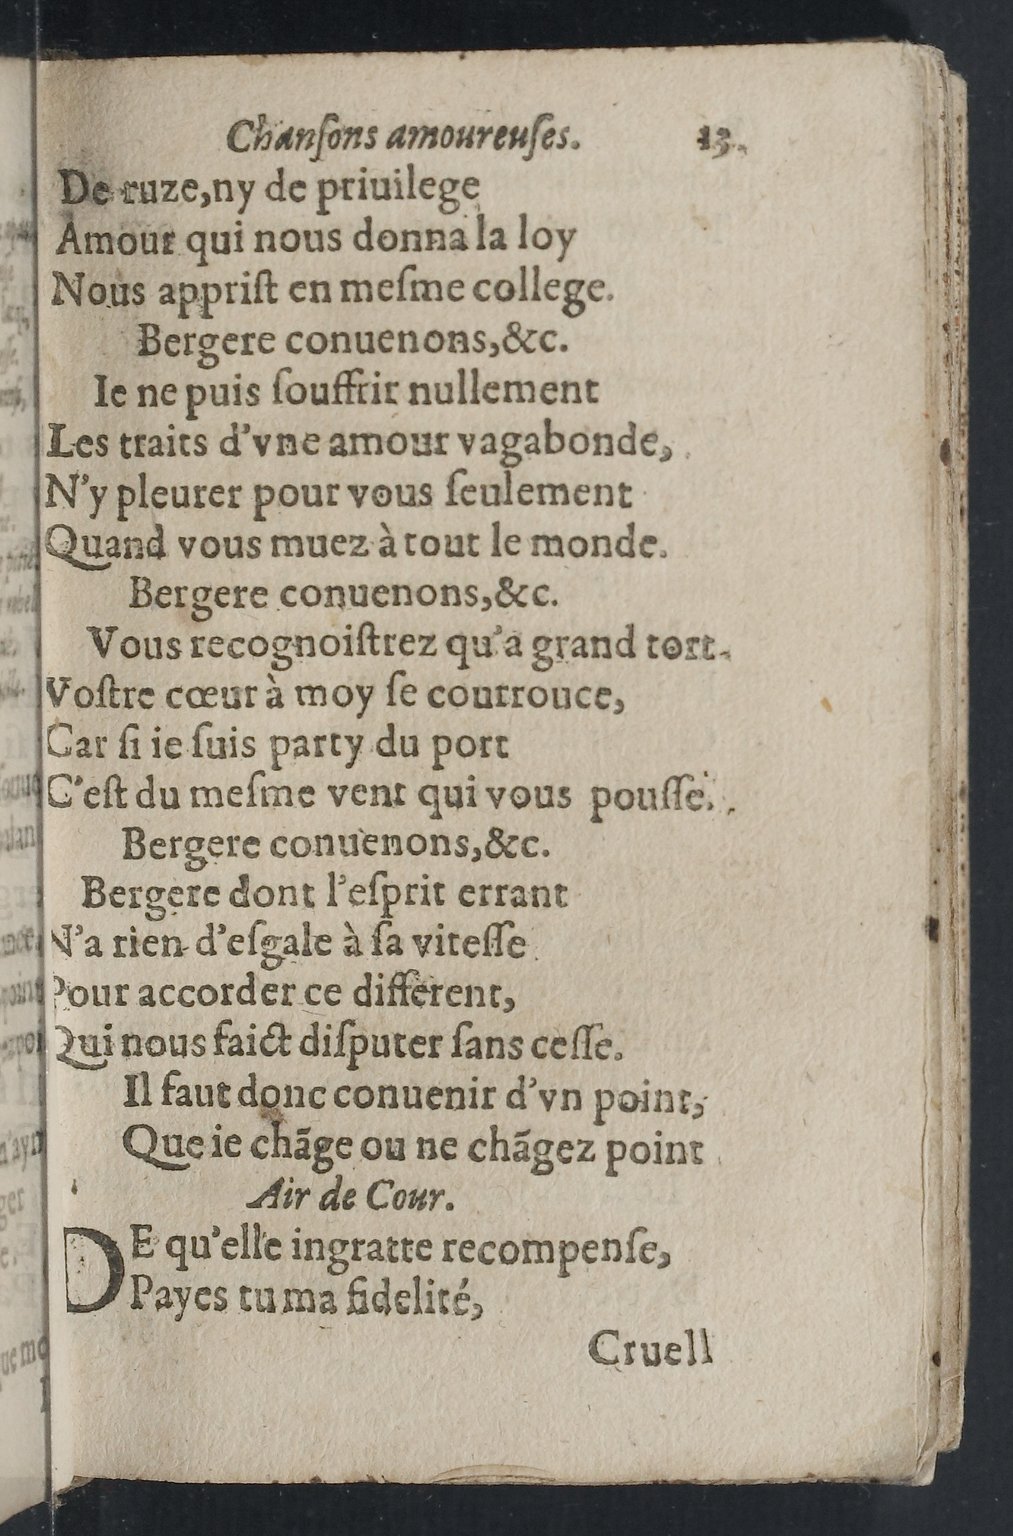 Chanſons amoureuſes. 13.
De ruze,ny de priuilege
Amour qui nous donna la loy
Nous appriſt en meſme college.
Bergere conuenons,&c.
Ie ne puis ſouffrir nullement
Les traits d'vne amour vagabonde,
N'y pleurer pour vous ſeulement
Quand vous muez à tout le monde.
Bergere conuenons,&c.
Vous recognoiſtrez qu'a grand tort.
Voſtre cœur à moy ſe courrouce,
Car ſi ie ſuis party du port
C'eſt du meſme vent qui vous pouſſe.
Bergere conuenons,&c.
Bergere dont l'eſprit errant
N'a rien d'eſgale à ſa viteſſe
Pour accorder ce different,
Qui nous faict diſputer ſans ceſſe.
Il faut donc conuenir d'vn point,
Que ie chãge ou ne chãgez point
Air de Cour.
DE qu'elle ingratte recompenſe,
Payes tu ma fidelité,
Cruell